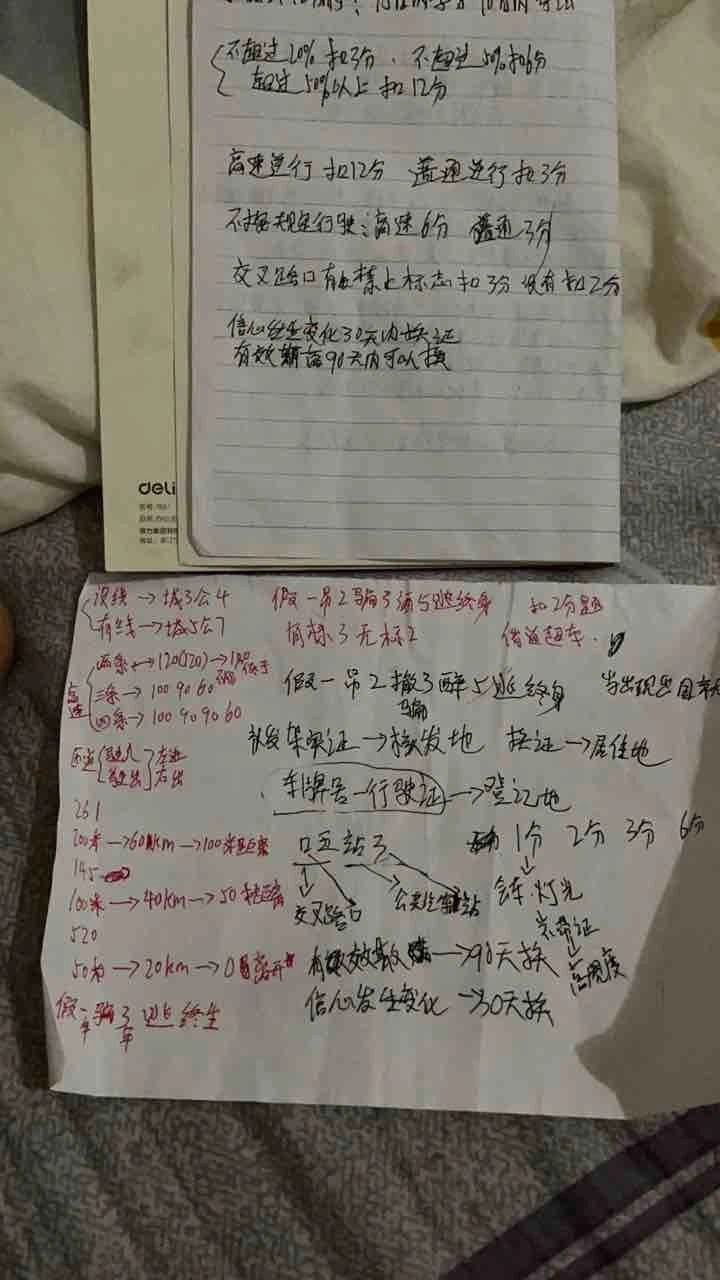 不超过20% 扣3分、不超过50%扣6分
超过50%以上 扣12分
高速逆行 扣12分 普通逆行扣3分
不按规定行驶：高速6分 普通3分
交叉路口有禁止标志扣3分 没有扣2分
信息发生变化30天内换证
有效期前90天内可以换
deli
没线→城3公4
有线→城5公7
高速
两条→120(120)→100
三条→100 90 60
四条→100 90 90 60
匝道 驶入 驶出 左进 右出
261
200米→60km→100米距离
145
100米→40km→50米距离
520
50米→20km→0 离开
假一骗3 逃终生
假一吊2骗3满5逃终身
有标3无标2
扣2分题
借道超车
假一吊2撤3醉5逃终身
骗
核发地 换证→居住地
车牌号—行驶证→登记地
口五站3
交叉路口
1分 2分 3分 6分
会车 灯光
未带证
→90天换
信息发生变化→30天换